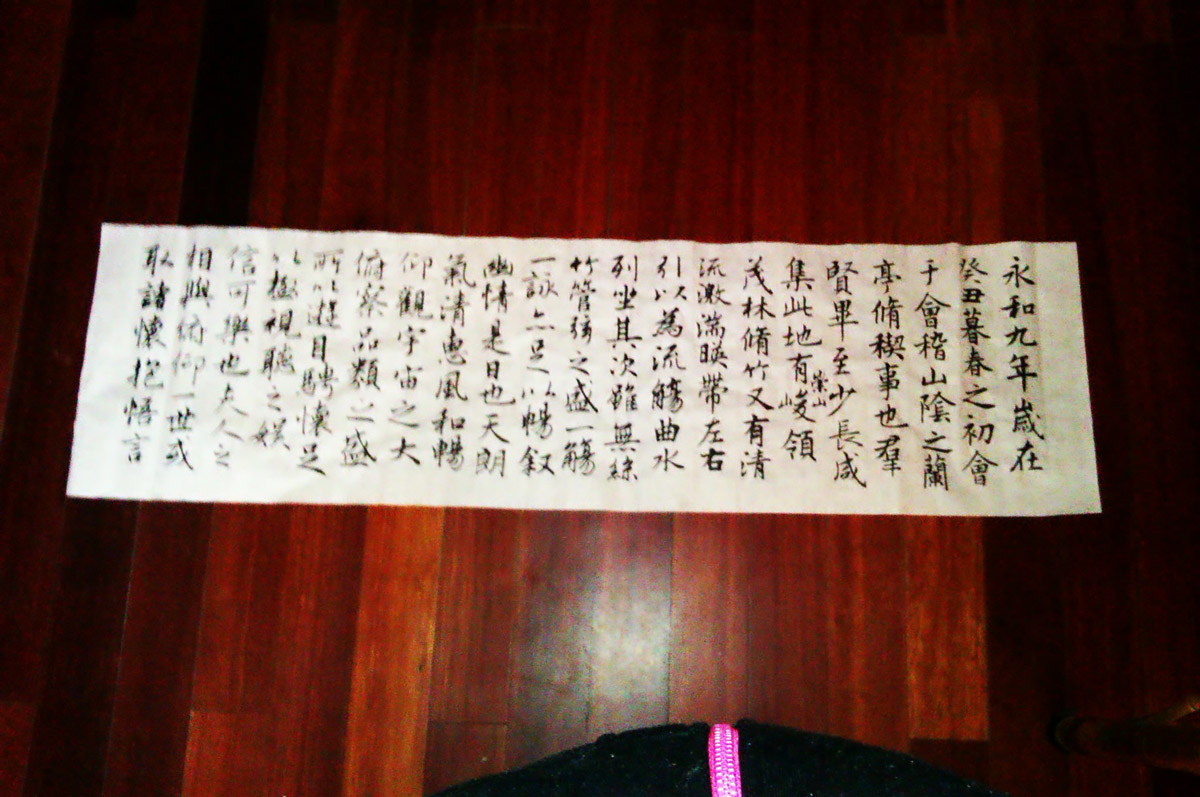 永和九年歲在
癸丑暮春之初會
于會稽山陰之蘭
亭脩稧事也群
賢畢至少長咸
集此地有崇山峻領
茂林脩竹又有清
流激湍暎帶左右
引以為流觴曲水
列坐其次雖無絲
竹管弦之盛一觴
一詠亦足以暢叙
幽情是日也天朗
氣清惠風和暢
仰觀宇宙之大
俯察品類之盛
所以遊目騁懷足
以極視聽之娛
信可樂也夫人之
相與俯仰一世或
取諸懷抱悟言